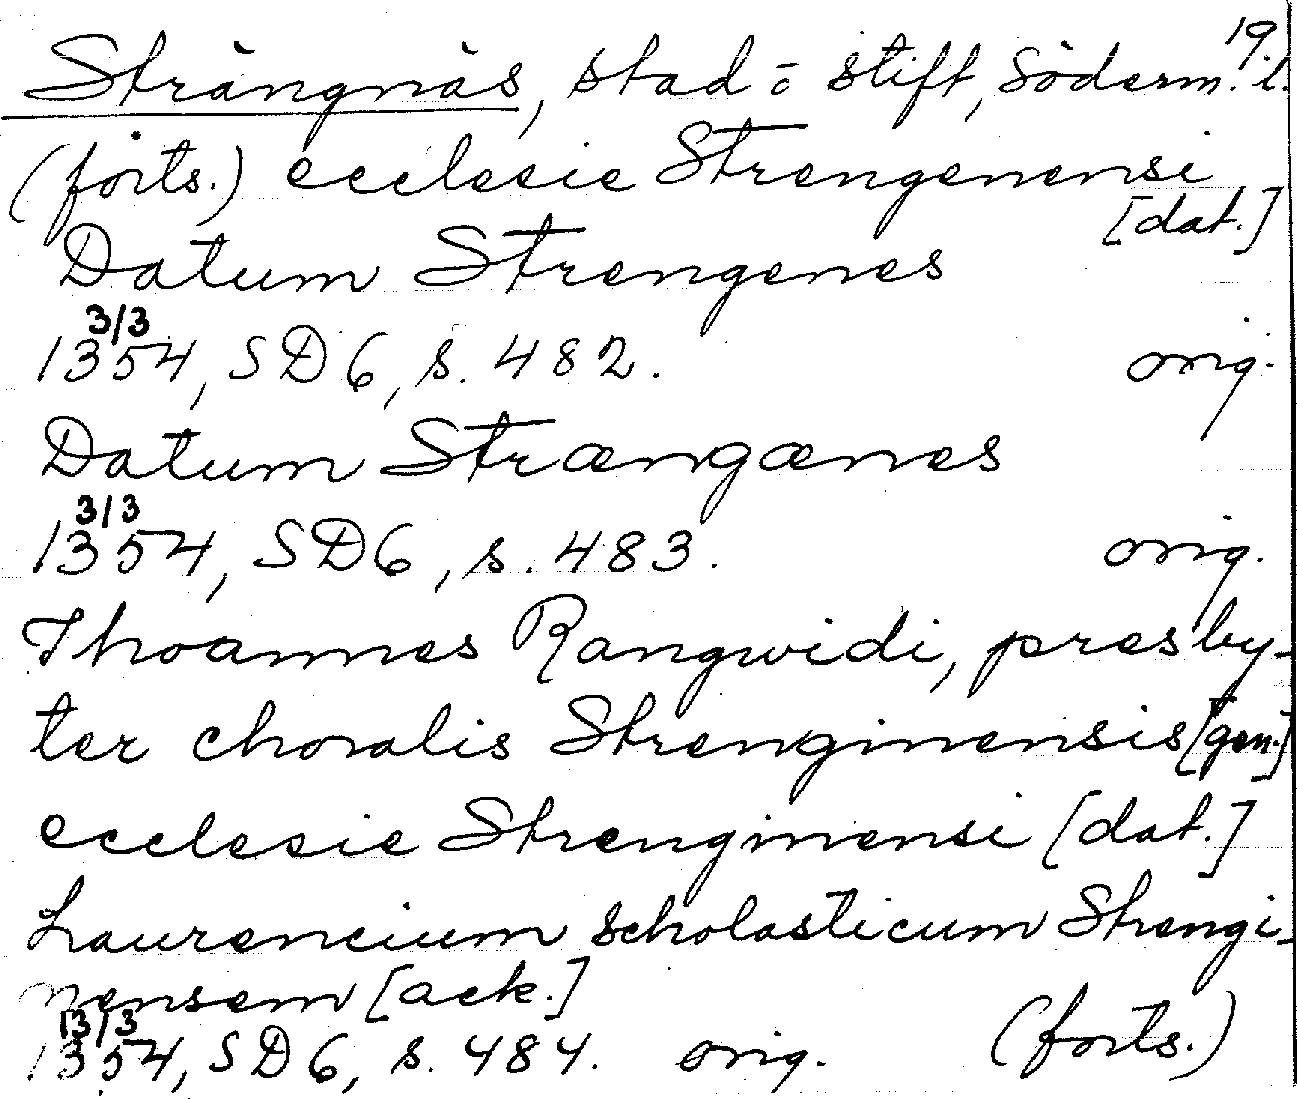 19.
Strängnäs, stad o stift, Söderm. l.
(forts.) ecclesie Strengenensi
[dat.]
Datum Strengenes
3/3
1354, SD6, s. 482. orig.
Datum Strængænes
3/3
1354, SD6, s. 483. orig.
Thoannes Rangwidi, presby-
ter choralis Strenginensis [gen.]
ecclesie Strenginensi [dat.]
Laurencium scholasticum Strengi-
nensem [ack.]
13/3
1354, SD6, s. 484. orig. (forts.)